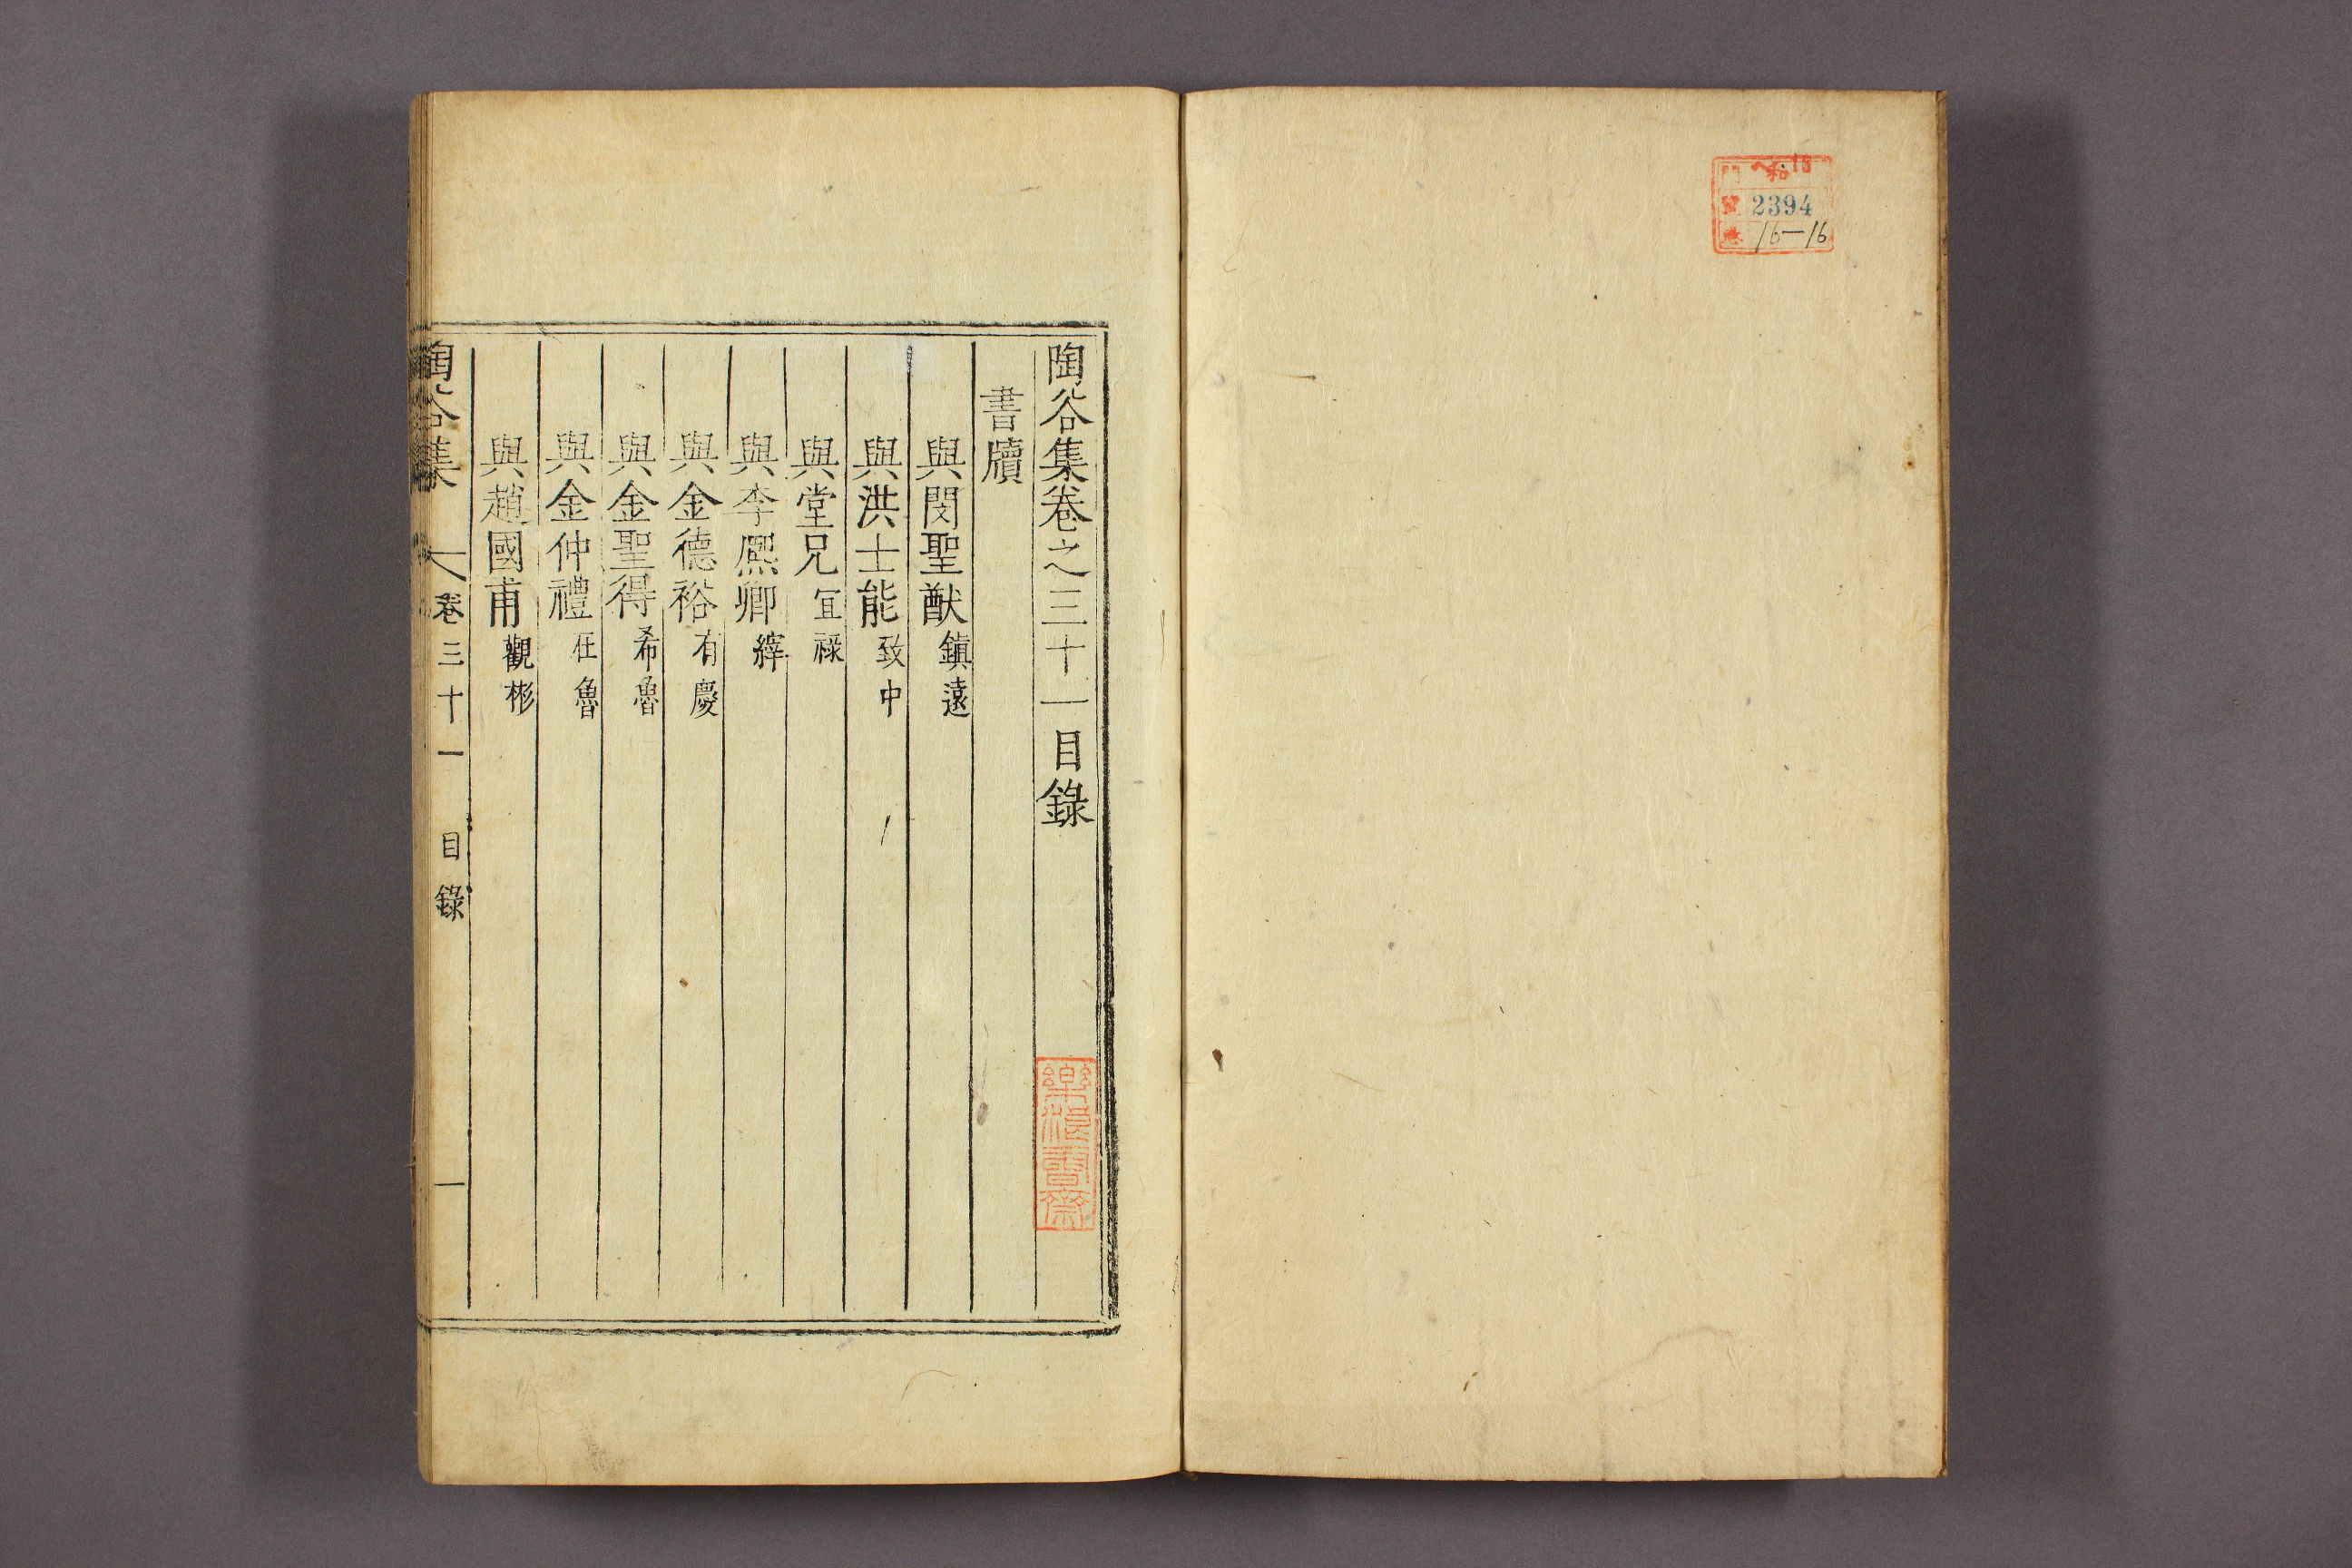 2394
16—16
陶谷集卷之三十一目錄
書牘
與閔聖猷鎭遠
與洪士能致中
與堂兄宜祿
與李熙卿縡
與金德裕有慶
與金聖得希魯
與金仲禮在魯
與趙國甫觀彬
陶谷集 卷三十一 目錄 一